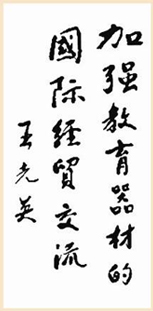 加强教育器材的
國际經貿交流
王光英